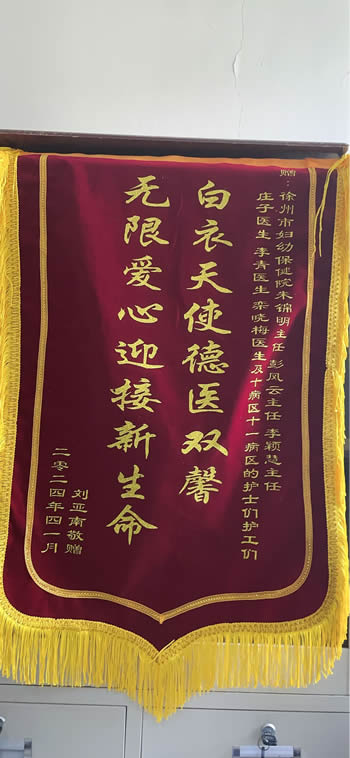 赠：徐州市妇幼保健院朱锦明主任 彭风云主任 李颖慧主任
庄子医生 李青医生 栾晓梅医生及十病区十一病区的护士们护工们
白衣天使德医双馨
无限爱心迎接新生命
刘亚南敬赠
二零二四年四一月